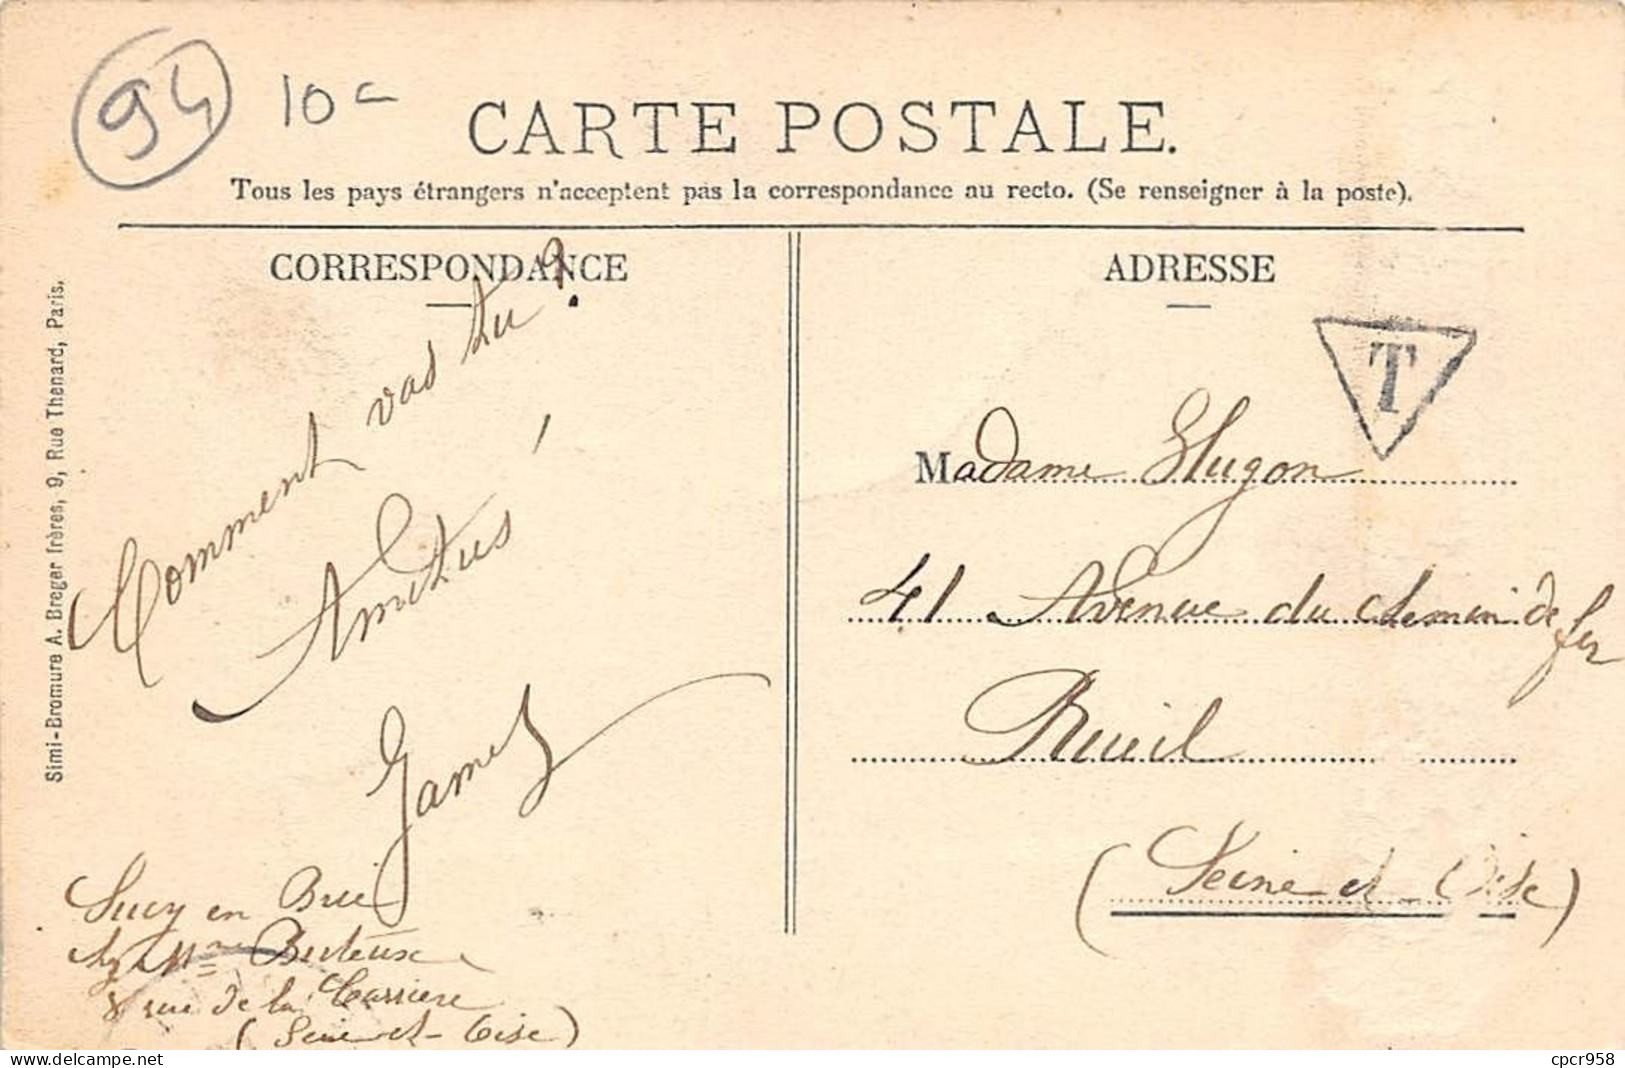 94
10c
CARTE POSTALE.
Tous les pays étrangers n'acceptent pas la correspondance au recto. (Se renseigner à la poste).
CORRESPONDANCE
Comment vas tu ?
Amitiés
James
Sucy en Brie
chz Mme Buteux
8 rue de la Carriere
(Seine et-Oise)
Simi-Bromure A. Breger frères, 9, Rue Thenard, Paris.
ADRESSE
T
Madame Hugon
41 Avenue du chemin de fer
Rueil
(Seine et-Oise)
cpcr958